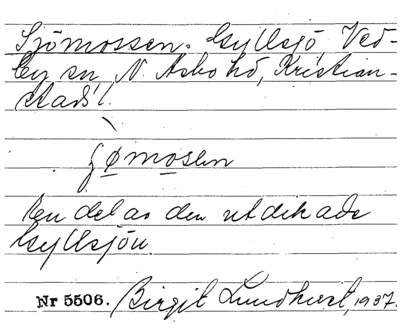 Sjömossen. Gyllsjö, Ved-
by sn, N. Åsbo hd, Kristian-
stads l.
jømosen
En del av den utdikade
Gyllsjön.
Nr 5506. Birgit Lundkvist, 1937.